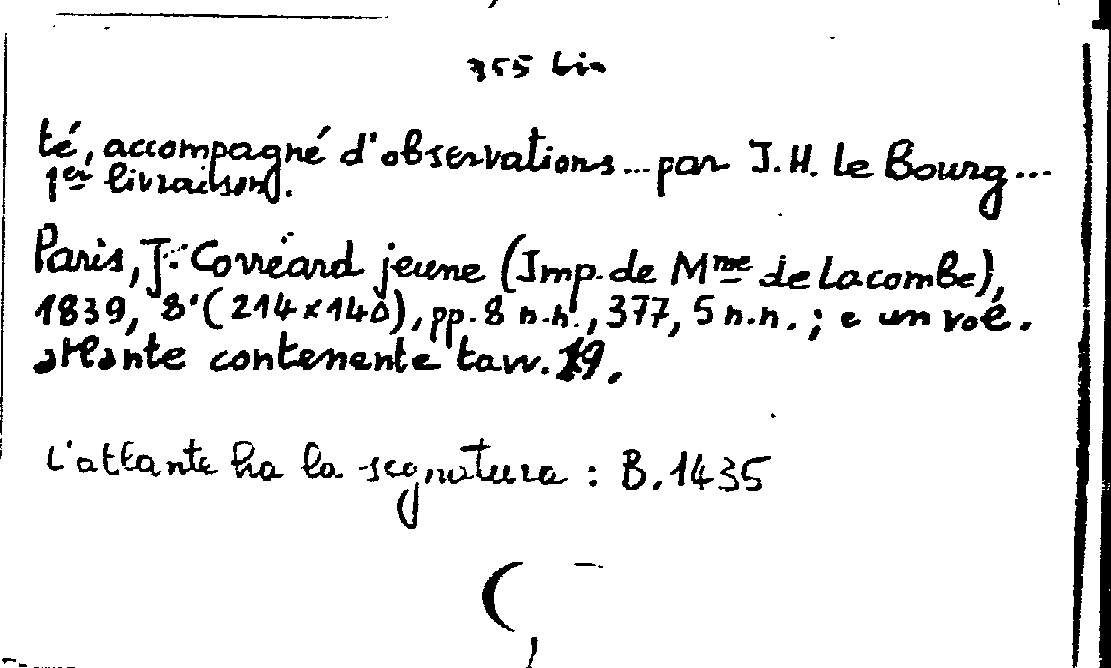 355 bis
té, accompagné d'observations... par J. H. le Bourg...
1er livraison.
Paris, J. Corréard jeune (Imp. de Mme de Lacombe),
1839, 8° (214 x 140), pp. 8 n.n., 377, 5 n.n. ; e un vol.
atlante contenente tavv. 19.
L'atlante ha la segnatura : B. 1435